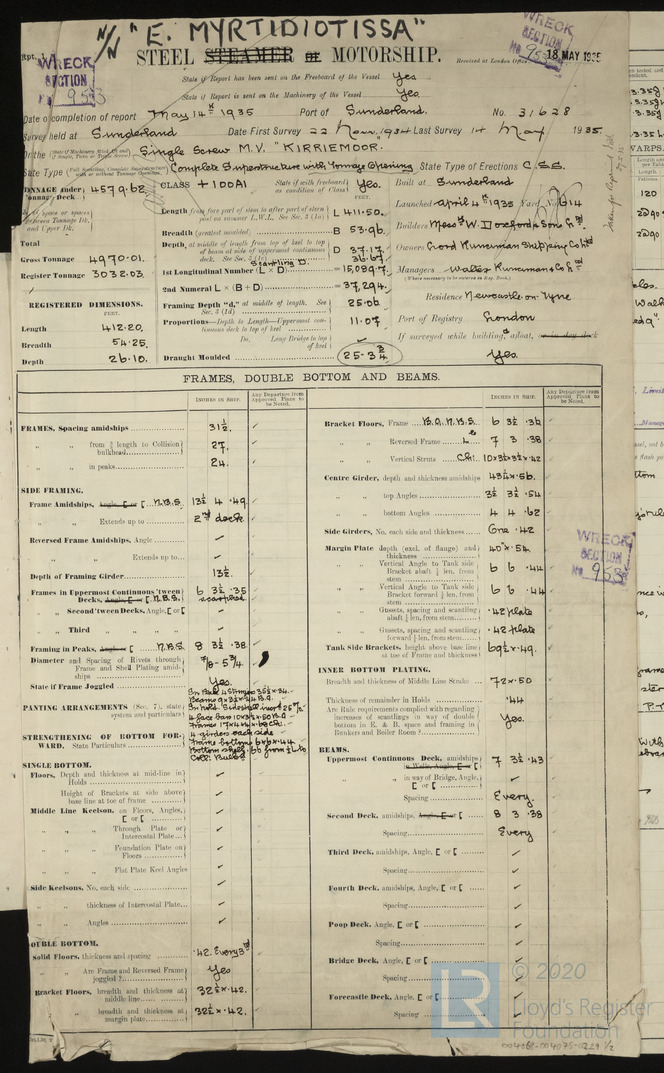 N/N "E. MYRTIDIOTISSA"
STEEL STEAMER OR MOTORSHIP.
WRECK SECTION No 953
WRECK SECTION
Received at London Office 18 MAY 1935
State if Report has been sent on the Freeboard of the Vessel Yes
State if Report is sent on the Machinery of the Vessel Yes
Date of completion of report May 14th 1935 Port of Sunderland. No. 31628
Survey held at Sunderland Date First Survey 22 Nov. 1934 Last Survey 14 May 1935.
On the Single Screw M.V. "KIRRIEMOOR.
State Type Complete Superstructure with Tonnage Opening State Type of Erections C.S.S.
TONNAGE under Tonnage Deck 4579.62
CLASS +100A1 State if with freeboard as condition of Class Yes.
Built at Sunderland
Launched April 4th 1935 Yard No 614
Length from fore part of stem to after part of stern L 411.50.
Builders Mess rs W. Doxford & Sons Ltd
Breadth (greatest moulded) B 53.96.
Total
Depth, at middle of length from top of keel to top of beam at side of uppermost continuous deck D 37.17.
Scantling D. 36.67
Owners
Gross Tonnage 4970.01.
Register Tonnage 3032.03.
1st Longitudinal Number (L × D) = 15,089.7
Managers Walter Runciman & Co Ltd
2nd Numeral L × (B + D) = 37,294.
Residence Newcastle-on-Tyne
REGISTERED DIMENSIONS.
FEET.
Framing Depth "d," at middle of length. See Sec. 3 (1d) 25.06
Port of Registry London
Proportions—Depth to Length—Uppermost continuous deck to top of keel 11.07
Do. Long Bridge to top of keel
If surveyed while building, afloat, or in dry dock Yes.
Length 412.20.
Breadth 54.25.
Depth 26.10.
Draught Moulded 25-3¾
FRAMES, DOUBLE BOTTOM AND BEAMS.
INCHES IN SHIP.
Any Departure from Approved Plans to be Noted.
FRAMES, Spacing amidships 31½.
" " from ⅕ length to Collision bulkhead 27.
" " in peaks 24.
SIDE FRAMING.
Frame Amidships, Angle, [ or [ N.B.S. 13½ 4 .49
" " Extends up to 2nd deck
Reversed Frame Amidships, Angle
" " Extends up to
Depth of Framing Girder 13½.
Frames in Uppermost Continuous 'tween Decks, Angle, [ or [ N.B.S. 6 3½ .35
" " Second 'tween Decks, Angle, [ or [
" " Third " "
Framing in Peaks, Angle or [ N.B.S. 8 3½ .38
Diameter and Spacing of Rivets through Frame and Shell Plating amidships ⅞-5¾
State if Frame Joggled Yes
PANTING ARRANGEMENTS (Sec. 7), state system and particulars
STRENGTHENING OF BOTTOM FORWARD. State Particulars
4 girders each side
SINGLE BOTTOM.
Floors, Depth and thickness at mid-line in Holds
Height of Brackets at side above base line at toe of frame
Middle Line Keelson, on Floors, Angles, [ or [
" " Through Plate or Intercostal Plate
" " Foundation Plate on Floors
" " Flat Plate Keel Angles
Side Keelsons, No. each side
" " thickness of Intercostal Plate
" " Angles
DOUBLE BOTTOM.
Solid Floors, thickness and spacing .42. Every 3rd
" " Are Frame and Reversed Frame joggled? Yes
Bracket Floors, breadth and thickness at middle line 32½×.42.
" " breadth and thickness at margin plate 32½×.42.
INCHES IN SHIP.
Any Departure from Approved Plans to be Noted.
Bracket Floors, Frame B.A. N.B.S. 6 3½ .36
" " Reversed Frame 7 3 .38
" " Vertical Struts 10×3½×3½×.42
Centre Girder, depth and thickness amidships 43¼×.56.
" " top Angles 3½ 3½ .54
" " bottom Angles 4 4 .62
Side Girders, No. each side and thickness One .42
Margin Plate depth (excl. of flange) and thickness 40"×.54.
" " Vertical Angle to Tank side Bracket abaft ¼ len. from stem 6 6 .44
" " Vertical Angle to Tank side Bracket forward ¼ len. from stem 6 6 .44
" " Gussets, spacing and scantling abaft ¼ len. from stem .42 plate
" " Gussets, spacing and scantling forward ¼ len. from stem .42 plate
Tank Side Brackets, height above base line at toe of Frame and thickness 69½×.49.
INNER BOTTOM PLATING.
Breadth and thickness of Middle Line Strake 72×.50
Thickness of remainder in Holds .44
Are Rule requirements complied with regarding increases of scantlings in way of double bottom in E. & B. space and framing in Bunkers and Boiler Room? Yes.
BEAMS.
Uppermost Continuous Deck, amidships 7 3½ .43
" " in way of Bridge, Angle, [ or [
Spacing Every.
Second Deck, amidships, Angle, [ or [ 8 3 .38
Spacing Every
Third Deck, amidships, Angle, [ or [
Spacing
Fourth Deck, amidships, Angle, [ or [
Spacing
Poop Deck, Angle, [ or [
Spacing
Bridge Deck, Angle, [ or [
Spacing
Forecastle Deck, Angle, [ or [
Spacing
WRECK SECTION No 953
LR © 2020 Lloyd's Register Foundation
004068-004075-0229 1/2